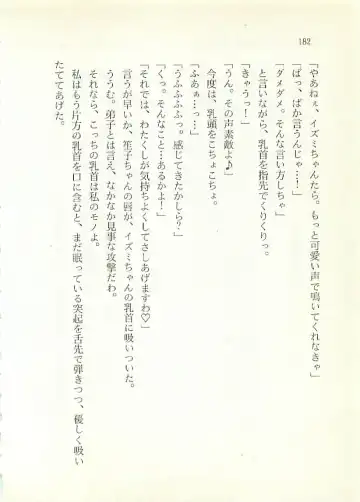 182
「やあねぇ、イズミちゃんたら。もっと可愛い声で鳴いてくれなきゃ」
「ばっ、ばか言うんじゃ…！」
「ダメダメ。そんな言い方しちゃ」
と言いながら、乳首を指先でくりくりっ。
「きゃうっ！」
「うん。その声素敵よ♪」
今度は、乳頭をこちょこちょ。
「ふあぁ…っ…」
「うふふふふっ。感じてきたかしら？」
「くっ。そんなこと…あるかよ！」
「それでは、わたくしが気持ちよくしてさしあげますわ♡」
言うが早いか、笙子ちゃんの唇が、イズミちゃんの乳首に吸いついた。
ううむ。弟子とは言え、なかなか見事な攻撃だわ。
それなら、こっちの乳首は私のモノよ。
私はもう片方の乳首を口に含むと、まだ眠っている突起を舌先で弾きつつ、優しく吸い
たててあげた。